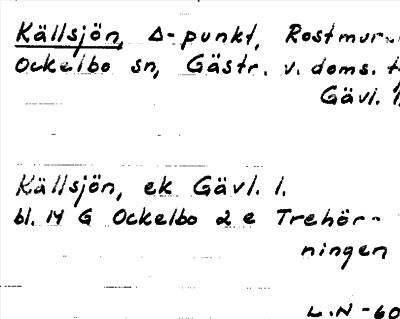 Källsjön, Δ-punkt, Rostmur
Ockelbo sn, Gästr. v. doms. t
Gävl. l
Källsjön, ek Gävl. l.
bl. 14 G Ockelbo 2 e Trehör-
ningen
L.N -60